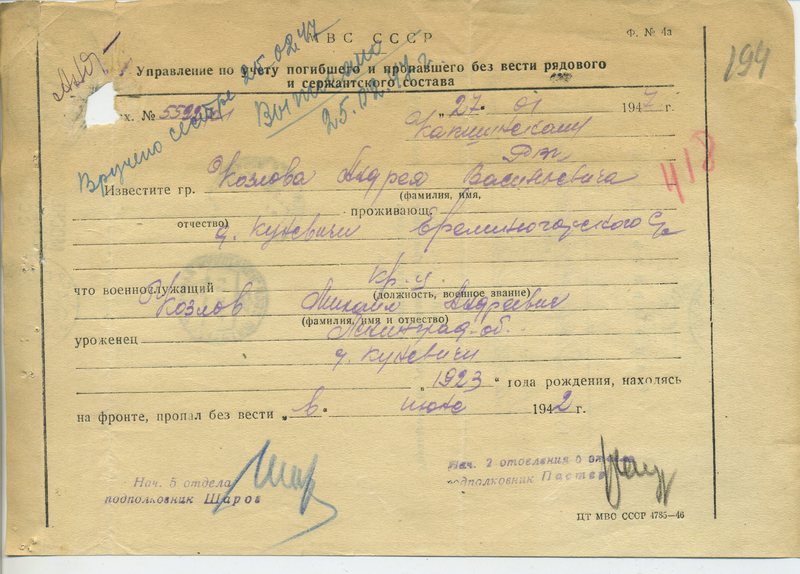 ВС СССР
Ф. № 4а
194
Управление по учету погибшего и пропавшего без вести рядового
и сержантского состава
Вручено сестре 25.02.47
Выписано
25.02.47 г
х. №
„27“ 01 1947 г.
РВК
418
Известите гр. Козлова Андрея Васильевича
(фамилия, имя,
отчество)
проживающ
д. Куневичи
что военнослужащий кр-ц.
(должность, военное звание)
Козлов Михаил Андреевич
(фамилия, имя и отчество)
уроженец Ленинград. об.
д. Куневичи
„1923 года рождения, находясь
на фронте, пропал без вести „в“ июне 1942 г.
Нач. 5 отдела
подполковник Шаров
Нач. 2 отделения 5 отдела
подполковник
ЦТ МВС СССР 4785—46